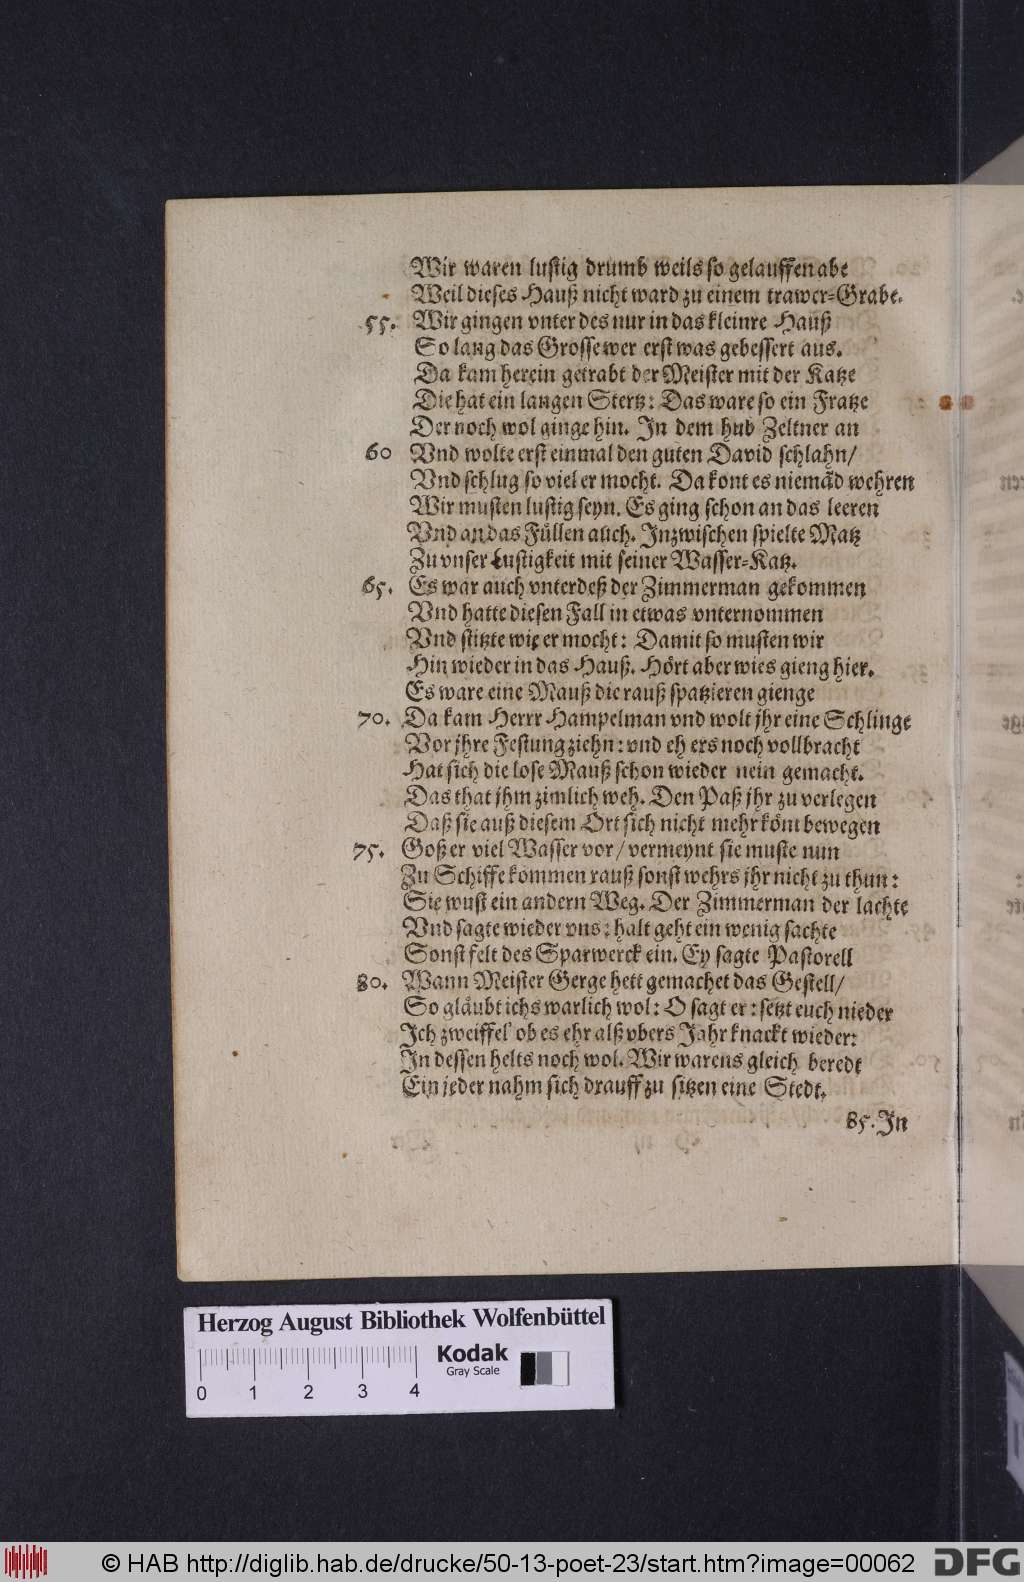 Wir waren lustig drumb weils so gelauffen abe
Weil dieses Hauß nicht ward zu einem trawer-Grabe.
55. Wir gingen vnter des nur in das kleinre Hauß
So lang das Grosse wer erst was gebessert aus.
Da kam herein getrabt der Meister mit der Katze
Die hat ein langen Stertz: Das ware so ein Fratze
Der noch wol ginge hin. In dem hub Zeltner an
60 Vnd wolte erst einmal den guten David schlahn/
Vnd schlug so viel er mocht. Da kont es niemãd wehren
Wir musten lustig seyn. Es ging schon an das leeren
Vnd an das Füllen auch. Inzwischen spielte Matz
Zu vnser Lustigkeit mit seiner Wasser-Katz.
65. Es war auch vnterdeß der Zimmerman gekommen
Vnd hatte diesen Fall in etwas vnternommen
Vnd stitzte wie er mocht: Damit so musten wir
Hin wieder in das Hauß. Hört aber wies gieng hier.
Es ware eine Mauß die rauß spatzieren gienge
70. Da kam Herrr Hampelman vnd wolt jhr eine Schlinge
Vor jhre Festung ziehn: vnd eh ers noch vollbracht
Hat sich die lose Mauß schon wieder nein gemacht.
Das that jhm zimlich weh. Den Paß jhr zu verlegen
Daß sie auß diesem Ort sich nicht mehr könt bewegen
75. Goß er viel Wasser vor/ vermeynt sie muste nun
Zu Schiffe kommen rauß sonst wehrs jhr nicht zu thun:
Sie wust ein andern Weg. Der Zimmerman der lachte
Vnd sagte wieder vns: halt geht ein wenig sachte
Sonst felt des Sparwerck ein. Ey sagte Pastorell
80. Wann Meister Gerge hett gemachet das Gestell/
So gläubt ichs warlich wol: O sagt er: setzt euch nieder
Ich zweiffel ob es ehr alß vbers Jahr knackt wieder:
In dessen helts noch wol. Wir warens gleich beredt
Ein jeder nahm sich drauff zu sitzen eine Stedt.
85. In
Herzog August Bibliothek Wolfenbüttel
Kodak
Gray Scale
0 1 2 3 4
© HAB http://diglib.hab.de/drucke/50-13-poet-23/start.htm?image=00062
DFG